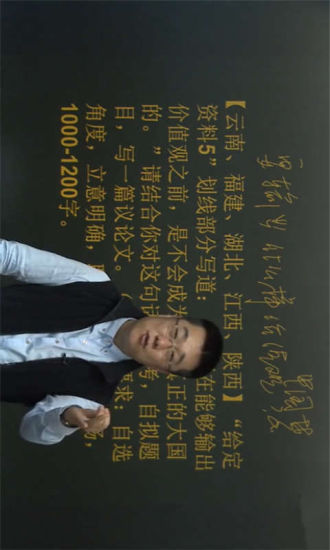 【云南、福建、湖北、江西、陕西】“给定
资料5”划线部分写道： 在能够输出
价值观之前，是不会成为 正的大国
的。”请结合你对这句 考，自拟题
目，写一篇议论文。 求：自选
角度，立意明确， 畅，
1000-1200字。